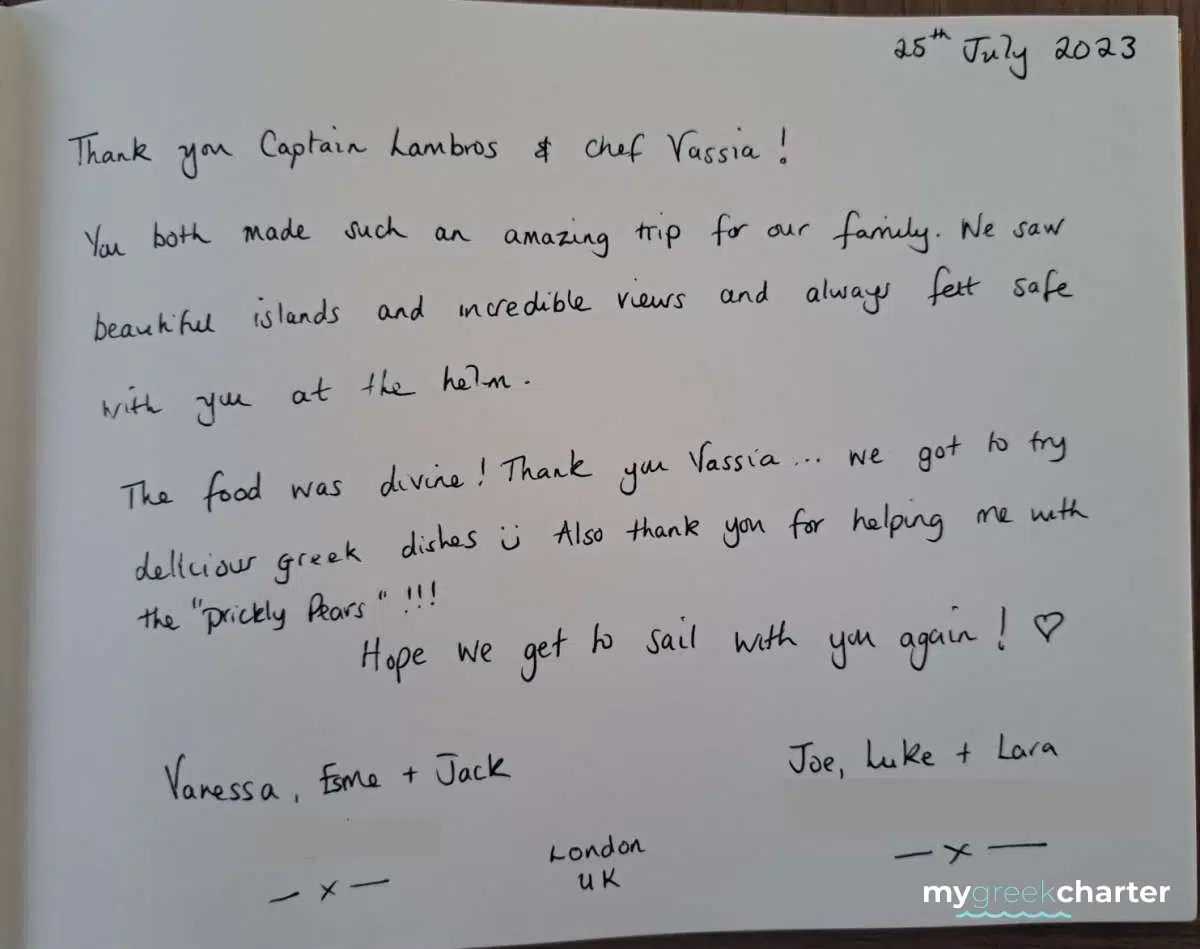 25th July 2023
Thank you Captain Lambros & Chef Vassia!
You both made such an amazing trip for our family. We saw
beautiful islands and incredible views and always felt safe
with you at the helm.
The food was divine! Thank you Vassia... we got to try
delicious greek dishes ü Also thank you for helping me with
the "Prickly Pears" !!!
Hope we get to sail with you again! ♡
Vanessa, Esme + Jack
Joe, Luke + Lara
— x —
London
UK
— x —
mygreekcharter